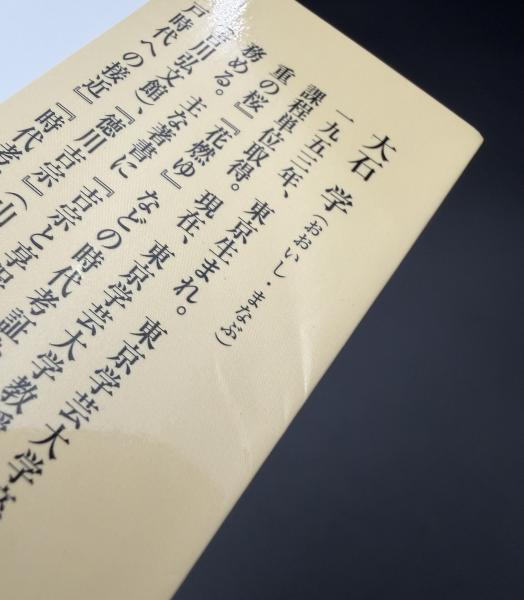 大石 学(おおいし・まなぶ)
一九五三年、東京生まれ。東京学芸大学卒
課程単位取得。現在、東京学芸大学教授
重の桜』『花燃ゆ』などの時代考証
務める。主な著書に『吉宗と享保
吉川弘文館)、『徳川吉宗』(山川
戸時代への接近』『時代考